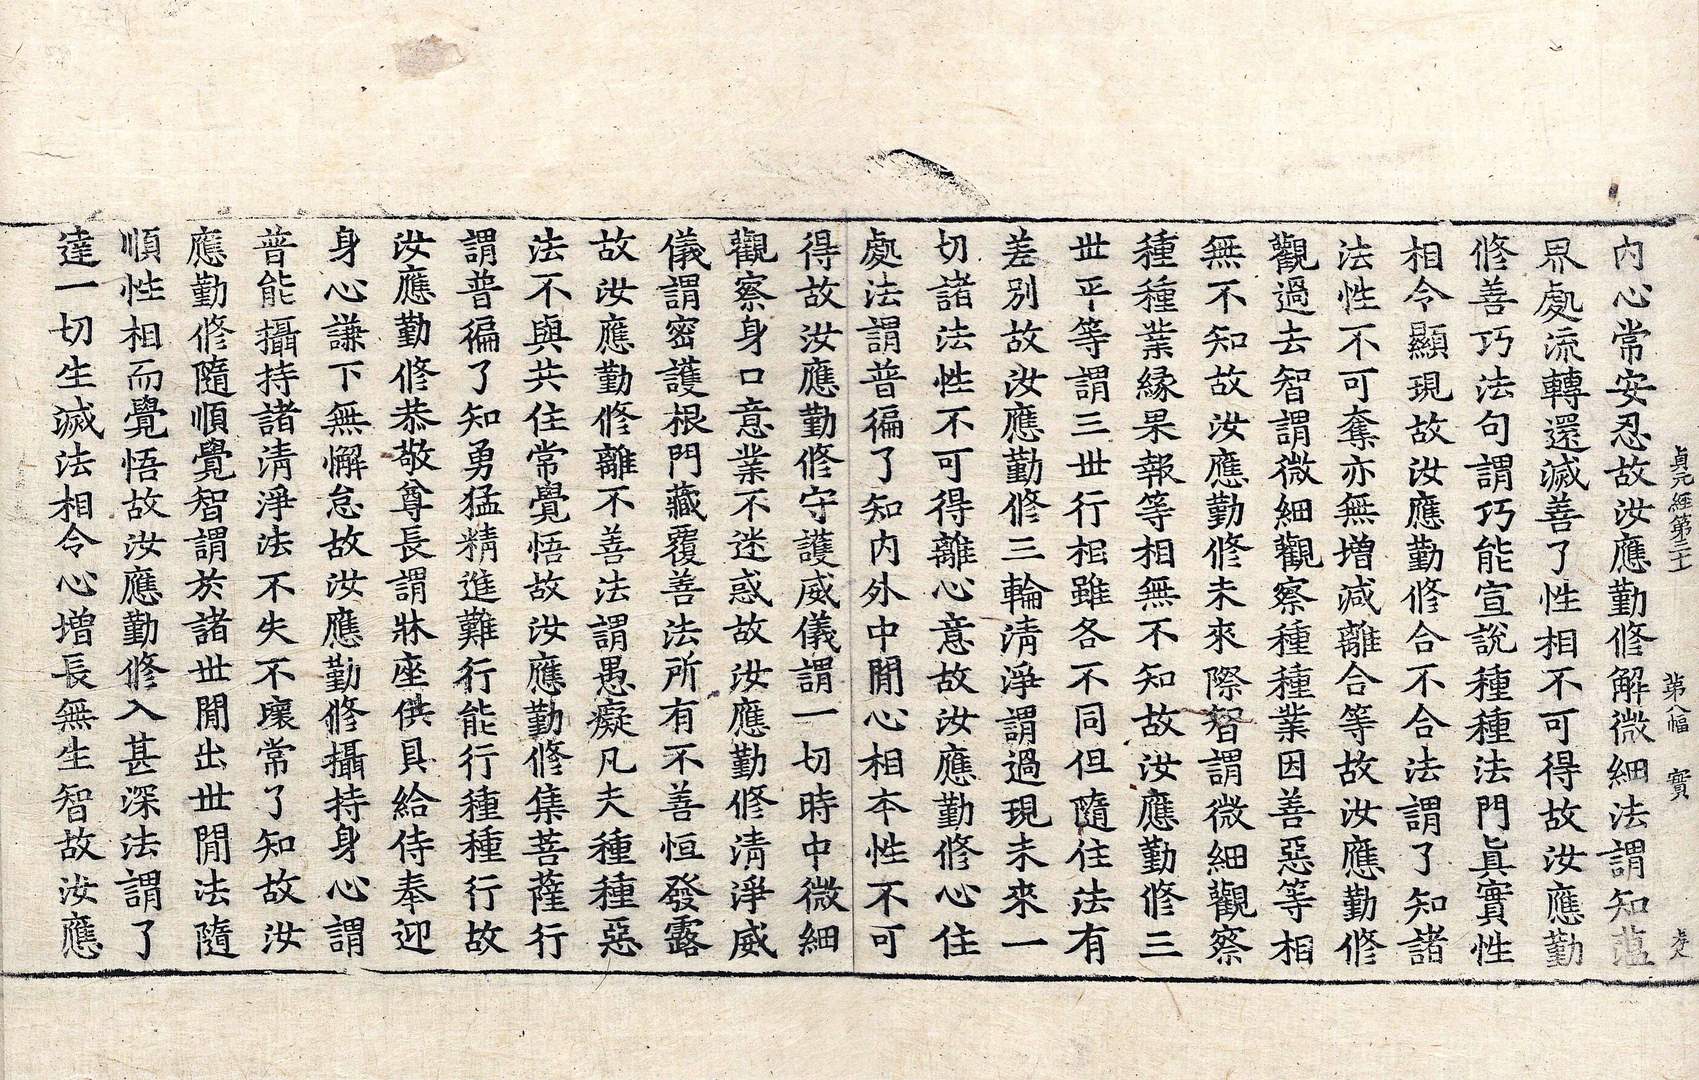 貞元經第三十 第八幅 實
內心常安忍故汝應勤修解微細法謂知蕰
界處流轉還滅善了性相不可得故汝應勤
修善巧法句謂巧能宣說種種法門眞實性
相令顯現故汝應勤修合不合法謂了知諸
法性不可奪亦無增減離合等故汝應勤修
觀過去智謂微細觀察種種業因善惡等相
無不知故汝應勤修未來際智謂微細觀察
種種業緣果報等相無不知故汝應勤修三
世平等謂三世行相雖各不同但隨住法有
差別故汝應勤修三輪淸淨謂過現未來一
切諸法性不可得離心意故汝應勤修心住
處法謂普徧了知內外中閒心相本性不可
得故汝應勤修守護威儀謂一切時中微細
觀察身口意業不迷惑故汝應勤修淸淨威
儀謂密護根門藏覆善法所有不善恒發露
故汝應勤修離不善法謂愚癡凡夫種種惡
法不與共住常覺悟故汝應勤修集菩薩行
謂普徧了知勇猛精進難行能行種種行故
汝應勤修恭敬尊長謂牀座供具給侍奉迎
身心謙下無懈怠故汝應勤修攝持身心謂
普能攝持諸淸淨法不失不壞常了知故汝
應勤修隨順覺智謂於諸世閒出世閒法隨
順性相而覺悟故汝應勤修入甚深法謂了
達一切生滅法相令心增長無生智故汝應